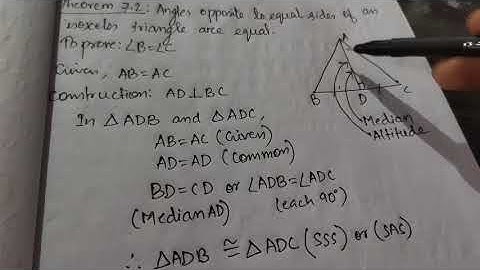 Theorem 7.2: Angles opposite to equal sides of an
isoceles triangle are equal.
To prove: ∠B=∠C
Given, AB=AC
Construction: AD⊥BC
In △ADB and △ADC,
AB=AC (Given)
AD=AD (Common)
BD=CD or ∠ADB=∠ADC
(Median AD) (each 90°)
∴ △ADB ≅ △ADC (SSS) or (SAS)
A
B D C
Median
Altitude